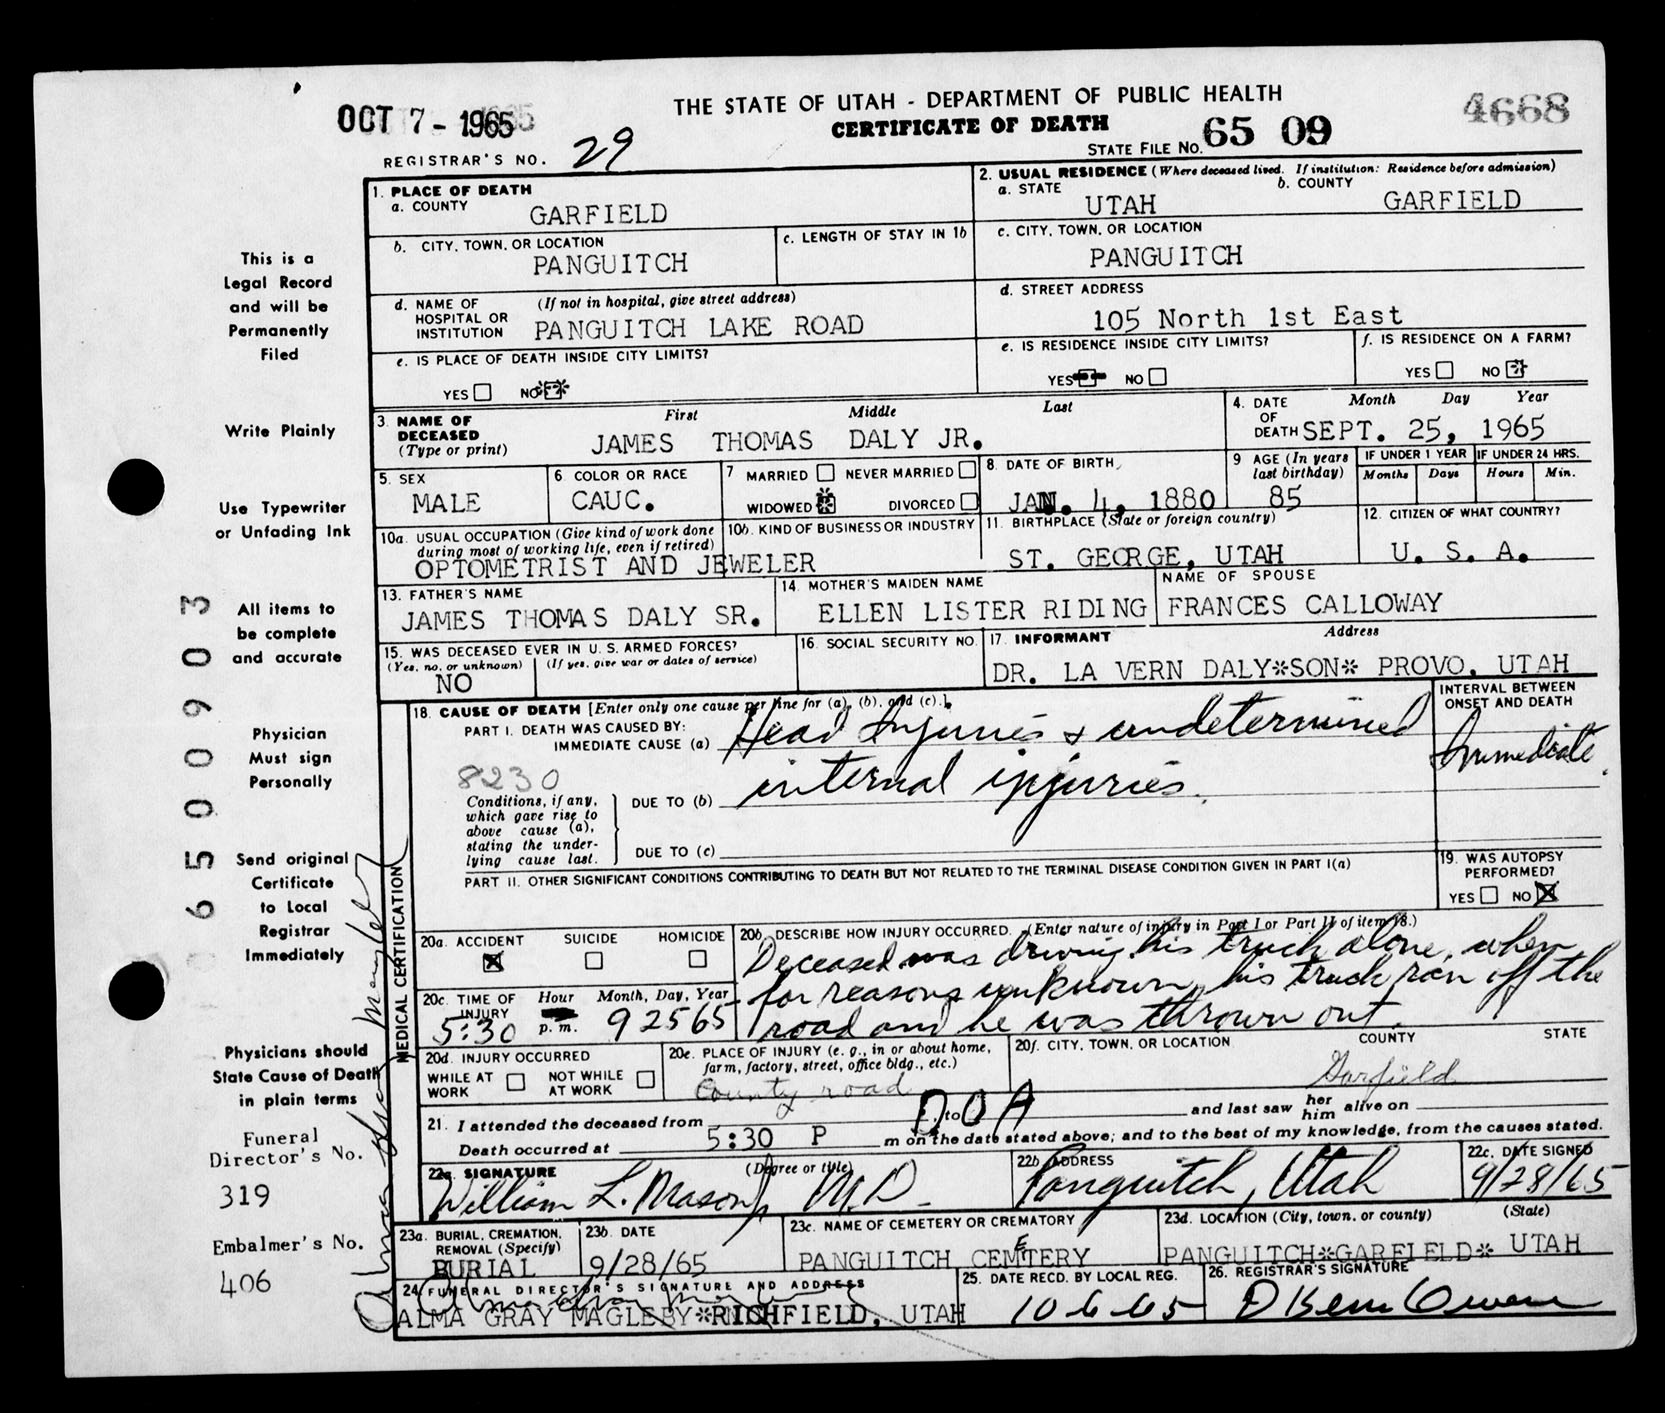 OCT 7 - 1965
THE STATE OF UTAH - DEPARTMENT OF PUBLIC HEALTH
CERTIFICATE OF DEATH
4668
REGISTRAR'S NO. 29
STATE FILE NO. 65 09
1. PLACE OF DEATH
a. COUNTY
GARFIELD
2. USUAL RESIDENCE (Where deceased lived. If institution: Residence before admission)
a. STATE b. COUNTY
UTAH GARFIELD
b. CITY, TOWN, OR LOCATION
PANGUITCH
c. LENGTH OF STAY IN 1b
c. CITY, TOWN, OR LOCATION
PANGUITCH
d. NAME OF HOSPITAL OR INSTITUTION (If not in hospital, give street address)
PANGUITCH LAKE ROAD
d. STREET ADDRESS
105 North 1st East
e. IS PLACE OF DEATH INSIDE CITY LIMITS?
YES NO
e. IS RESIDENCE INSIDE CITY LIMITS?
YES NO
f. IS RESIDENCE ON A FARM?
YES NO
3. NAME OF DECEASED (Type or print)
First Middle Last
JAMES THOMAS DALY JR.
4. DATE OF DEATH
Month Day Year
SEPT. 25, 1965
5. SEX
MALE
6 COLOR OR RACE
CAUC.
7 MARRIED NEVER MARRIED
WIDOWED DIVORCED
8. DATE OF BIRTH
JAN. 4, 1880
9 AGE (In years last birthday)
85
IF UNDER 1 YEAR
Months Days
IF UNDER 24 HRS.
Hours Min.
10a. USUAL OCCUPATION (Give kind of work done
during most of working life, even if retired)
10b. KIND OF BUSINESS OR INDUSTRY
OPTOMETRIST AND JEWELER
11. BIRTHPLACE (State or foreign country)
ST. GEORGE, UTAH
12. CITIZEN OF WHAT COUNTRY?
U. S. A.
13. FATHER'S NAME
JAMES THOMAS DALY SR.
14. MOTHER'S MAIDEN NAME
ELLEN LISTER RIDING
NAME OF SPOUSE
FRANCES CALLOWAY
15. WAS DECEASED EVER IN U. S. ARMED FORCES?
(Yes, no, or unknown) (If yes, give war or dates of service)
NO
16. SOCIAL SECURITY NO.
17. INFORMANT Address
DR. LA VERN DALY*SON* PROVO, UTAH
18. CAUSE OF DEATH [Enter only one cause per line for (a), (b), and (c).]
INTERVAL BETWEEN ONSET AND DEATH
PART I. DEATH WAS CAUSED BY:
IMMEDIATE CAUSE (a) Head Injuries & undetermined
Immediate.
8230
Conditions, if any,
which gave rise to
above cause (a),
stating the under-
lying cause last.
DUE TO (b) internal injuries.
DUE TO (c)
PART II. OTHER SIGNIFICANT CONDITIONS CONTRIBUTING TO DEATH BUT NOT RELATED TO THE TERMINAL DISEASE CONDITION GIVEN IN PART I(a)
19. WAS AUTOPSY PERFORMED?
YES NO
MEDICAL CERTIFICATION
20a. ACCIDENT SUICIDE HOMICIDE
20b. DESCRIBE HOW INJURY OCCURRED. (Enter nature of injury in Part I or Part II of item 18.)
Deceased was driving his truck alone, when
for reasons unknown, his truck ran off the
road and he was thrown out.
20c. TIME OF INJURY
Hour Month, Day, Year
5:30 p. m. 9 25 65
20d. INJURY OCCURRED
WHILE AT WORK NOT WHILE AT WORK
20e. PLACE OF INJURY (e. g., in or about home,
farm, factory, street, office bldg., etc.)
County road
20f. CITY, TOWN, OR LOCATION COUNTY STATE
Garfield
21. I attended the deceased from to DOA and last saw her him alive on
Death occurred at 5:30 P m on the date stated above; and to the best of my knowledge, from the causes stated.
22a. SIGNATURE (Degree or title)
William L. Mason Jr M.D.
22b ADDRESS
Panguitch, Utah
22c. DATE SIGNED
9/28/65
23a. BURIAL, CREMATION, REMOVAL (Specify)
BURIAL
23b. DATE
9/28/65
23c. NAME OF CEMETERY OR CREMATORY
PANGUITCH CEMETERY
23d. LOCATION (City, town, or county) (State)
PANGUITCH*GARFIELD* UTAH
24. FUNERAL DIRECTOR'S SIGNATURE AND ADDRESS
ALMA GRAY MAGLEBY*RICHFIELD, UTAH
25. DATE RECD. BY LOCAL REG.
10-6-65
26. REGISTRAR'S SIGNATURE
This is a
Legal Record
and will be
Permanently
Filed
Write Plainly
Use Typewriter
or Unfading Ink
All items to
be complete
and accurate
Physician
Must sign
Personally
Send original
Certificate
to Local
Registrar
Immediately
Physicians should
State Cause of Death
in plain terms
Funeral
Director's No.
319
Embalmer's No.
406
65 00903